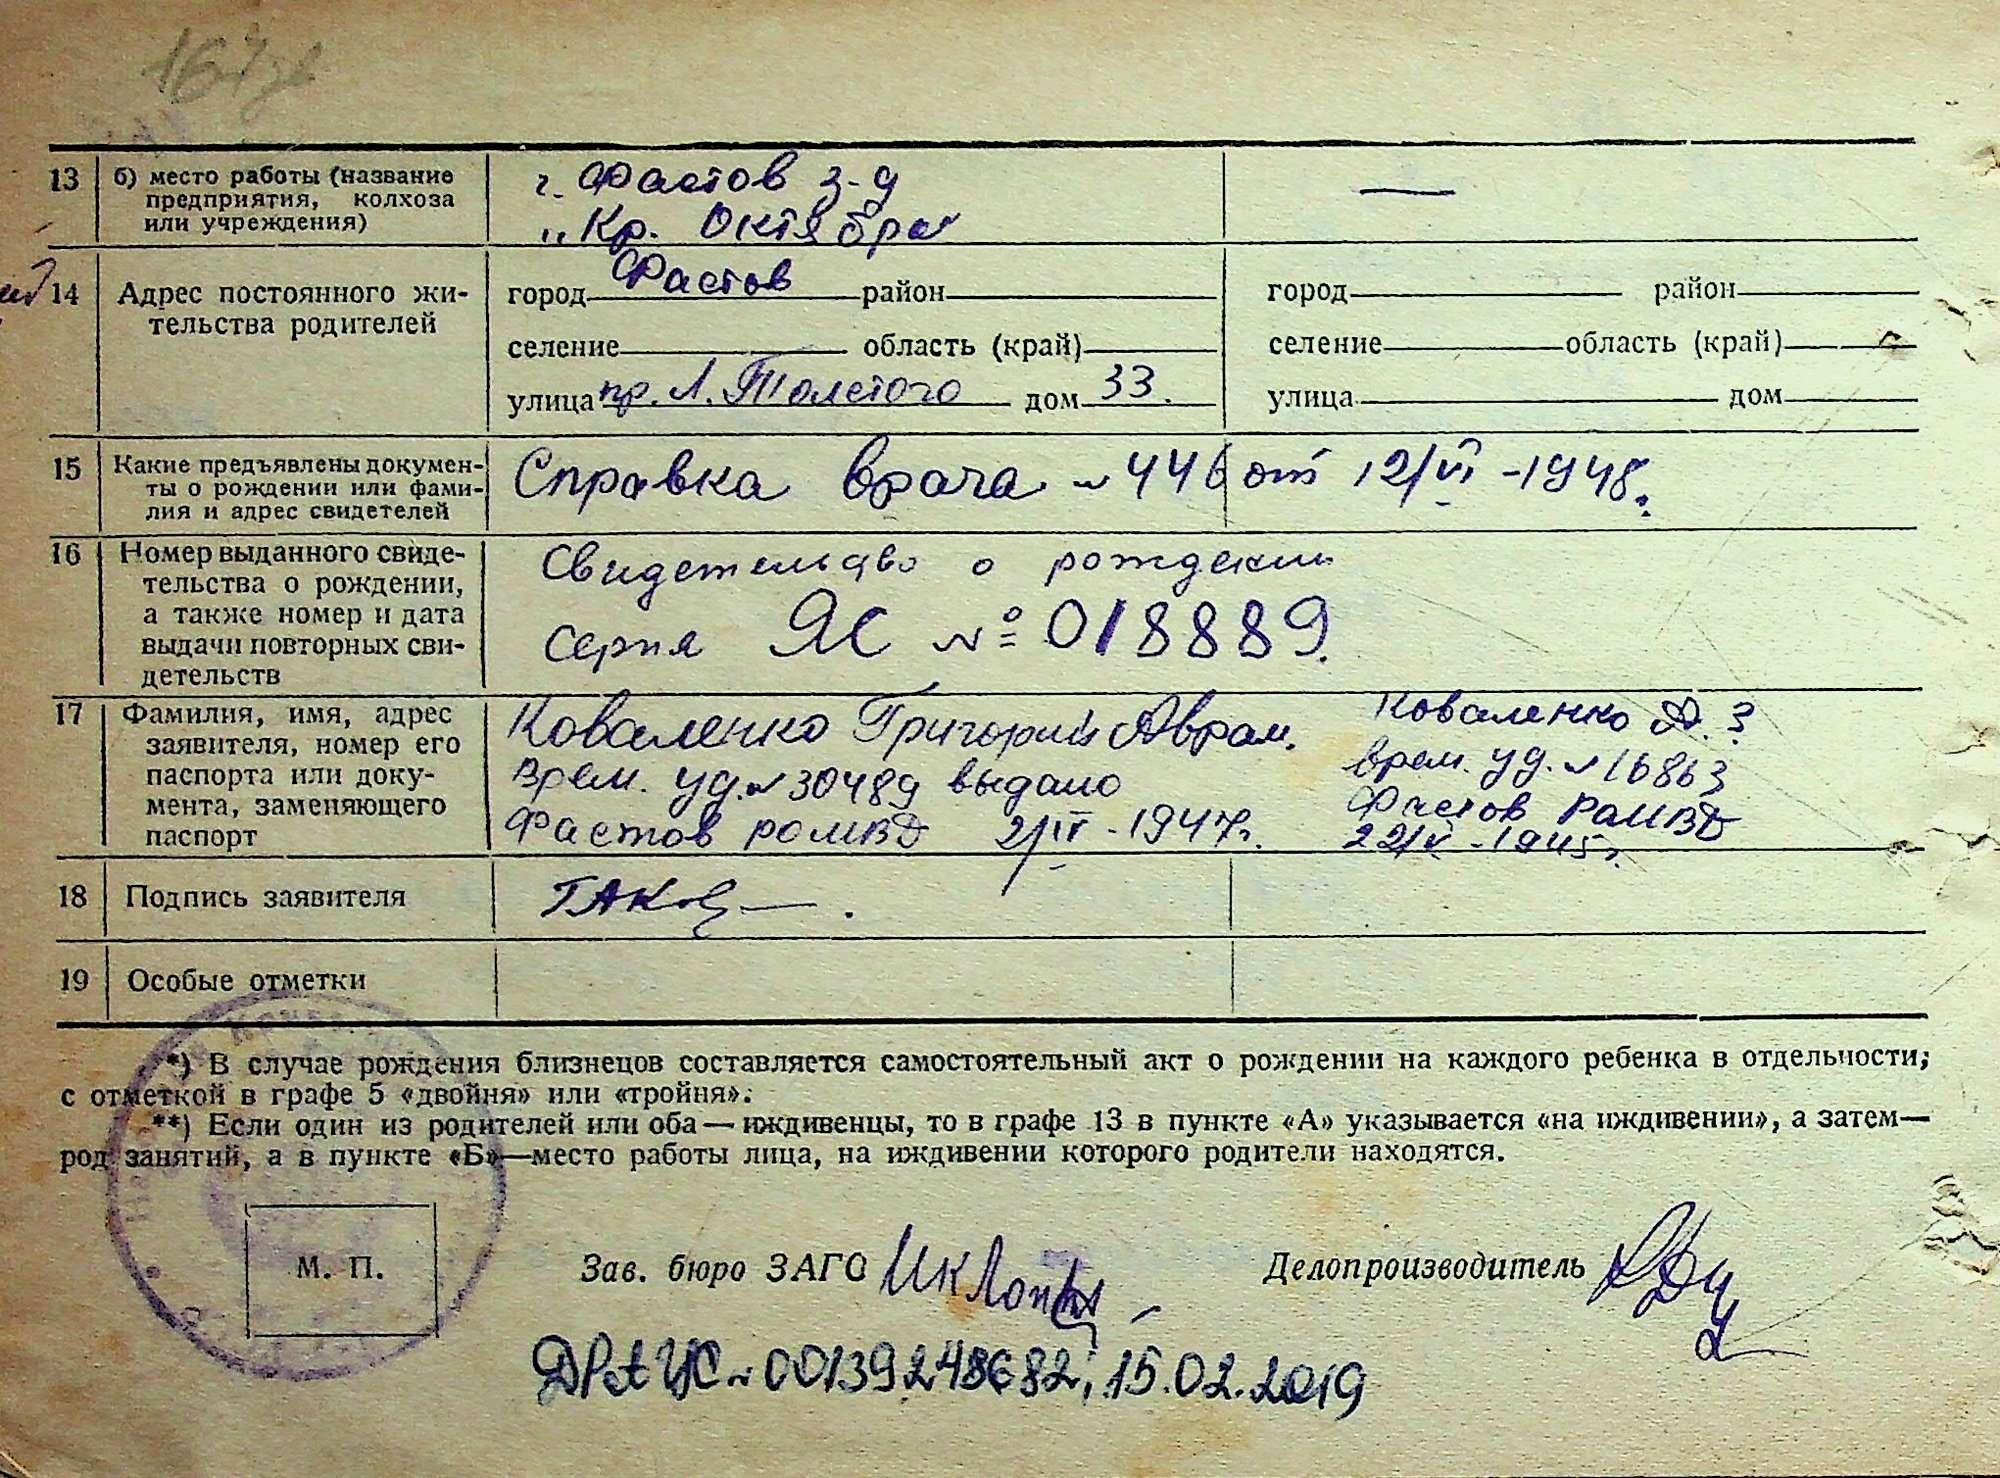 13 б) место работы (название г. Фастов з-д —
предприятия, колхоза
или учреждения) „Кр. Октябрь
14 Адрес постоянного жи- город Фастов район город район
тельства родителей селение область (край) селение область (край)
улица пр. Л. Толстого дом 33. улица дом
15 Какие предъявлены докумен- Справка врача №446 от 12/VI-1948г.
ты о рождении или фами-
лия и адрес свидетелей
16 Номер выданного свиде- Свидетельство о рождении
тельства о рождении,
а также номер и дата серия ЯС № 018889.
выдачи повторных сви-
детельств
17 Фамилия, имя, адрес Коваленко Григорий Аврам. Коваленко А. З
заявителя, номер его
паспорта или доку- врем. уд. № 30489 выдано врем. уд. № 16863
мента, заменяющего Фастов РОМВД
паспорт Фастов РОМВД 2/IV-1947г. 22/V-1945г.
18 Подпись заявителя
19 Особые отметки
*) В случае рождения близнецов составляется самостоятельный акт о рождении на каждого ребенка в отдельности,
с отметкой в графе 5 «двойня» или «тройня».
**) Если один из родителей или оба — иждивенцы, то в графе 13 в пункте «А» указывается «на иждивении», а затем—
род занятий, а в пункте «Б»—место работы лица, на иждивении которого родители находятся.
М. П. Зав. бюро ЗАГС Делопроизводитель
ДРАЦС № 00139248682, 15.02.2019